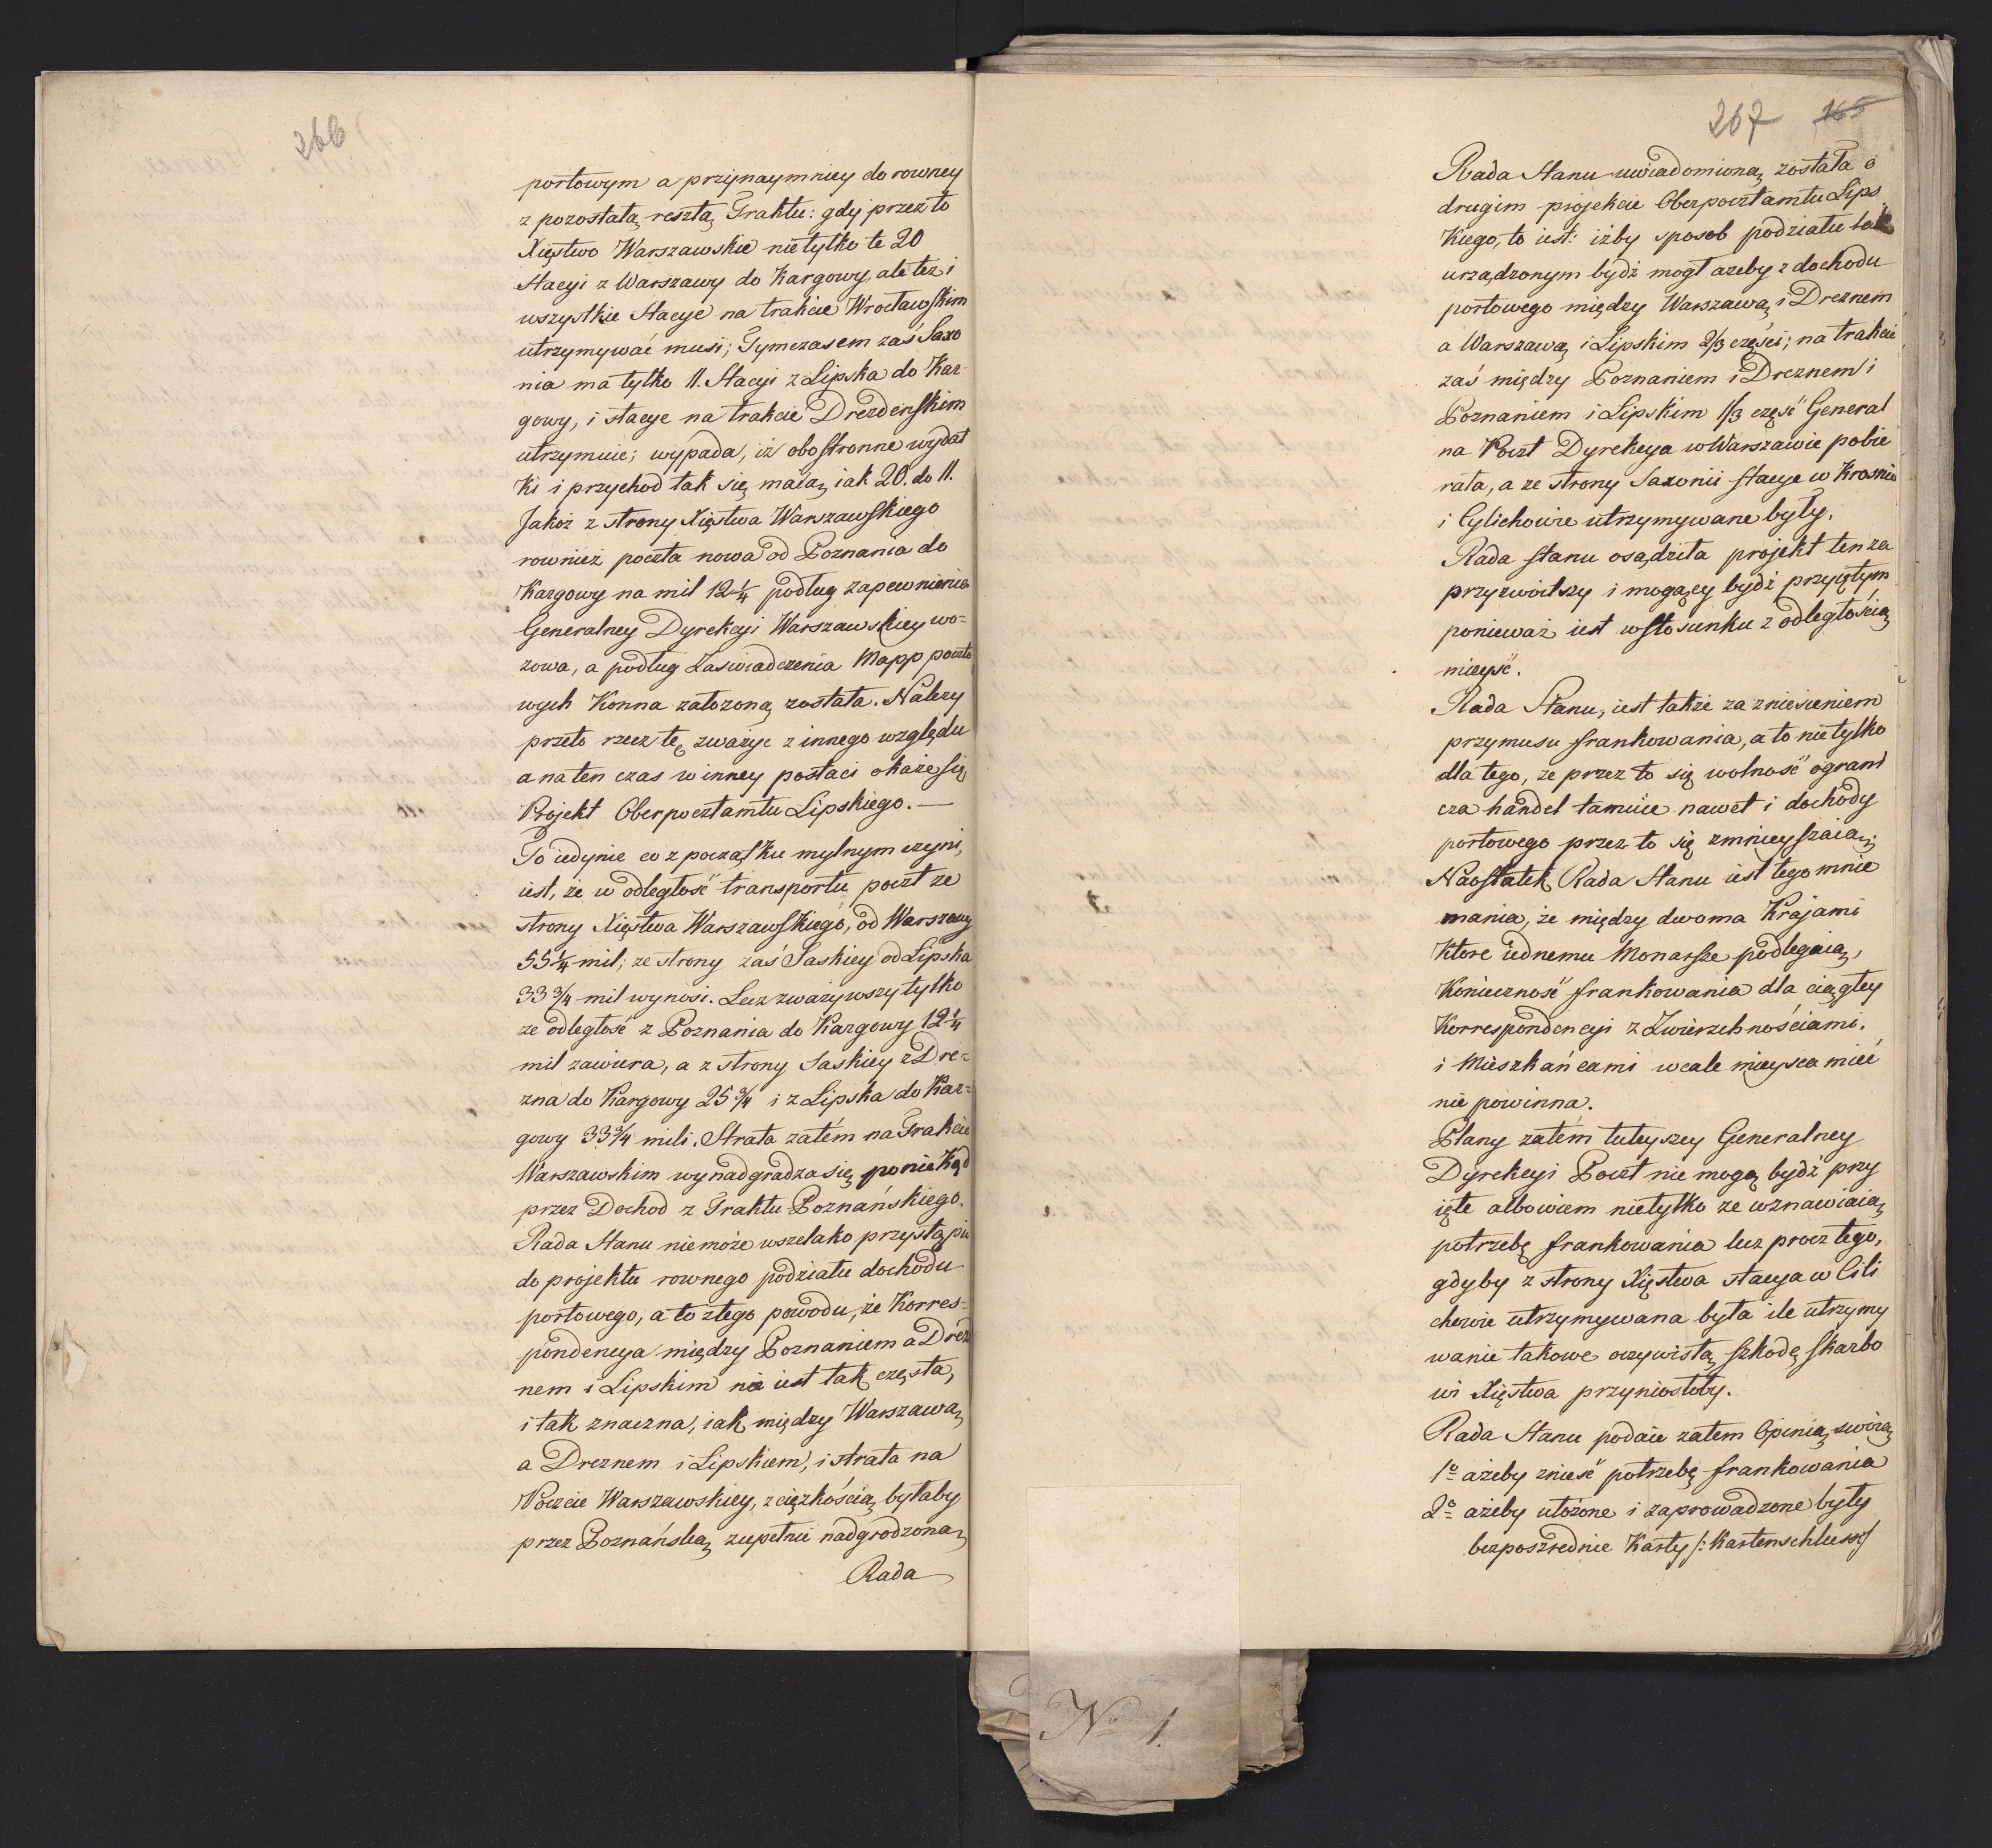 266
portowym a przynaymniey do rowney
z pozostałą resztą Traktu: gdy przez to
Xięstwo Warszawskie nietylko te 20
Stacyi z Warszawy do Kargowy, ale też i
wszystkie Stacye na trakcie Wrocławskim
utrzymywać musi; Tymczasem zaś Saxo
nia ma tylko 11. Stacyi z Lipska do Kar-
gowy, i stacye na trakcie Drezdenskim
utrzymuie; wypada, iż obostronne wydat
ki i przychod tak się maią iak 20. do 11.
Jakoż z strony Xięstwa Warszawskiego
rownież poczta nowa od Poznania do
Kargowy na mil 12¼ podług zapewnienia
Generalney Dyrekcyi Warszawskiey wo=
zowa, a podług Zaswiadczenia Mapp poczto
wych Konna założoną została. Należy
przeto rzecz tę zważyc z innego względu
a na ten czas w inney postaci okaże się
Projekt Oberpocztamtu Lipskiego. —
To iedynie co z początku mylnym czyni,
iest, że w odległość transportu poczt ze
strony Xięstwa Warszawskiego, od Warszawy
55¼ mil; ze strony zaś Saskiey od Lipska
33¾ mil wynosi. Lecz zważywszy tylko
ze odległość z Poznania do Kargowy 12¼
mil zawiera, a z strony Saskiey z Dre=
zna do Kargowy 25¾ i z Lipska do Kar=
gowy 33¾ mili. Strata zatém na Trakcie
Warszawskim wynadgradza się poniekąd
przez Dochod z Traktu Poznańskiego.
Rada Stanu niemoże wszelako przystąpić
do projektu rownego podziału dochodu
portowego, a to z tego powodu, że Korres=
pondencya między Poznaniem a Drez
nem i Lipskim nie iest tak częsta,
i tak znaczna, iak między Warszawą
a Dreznem i Lipskiem, i strata na
Poczcie Warszawskiey, z ciężkością byłaby
przez Poznańską zupełnie nadgrodzoną
Rada
267 165
Rada Stanu uwiadomioną została o
drugim projekcie Oberpocztamtu Lips
kiego, to iest: iżby sposob podziału tak
urządzonym bydź mogł azeby z dochodu
portowego między Warszawą i Dreznem
a Warszawą i Lipskim 2/3 części; na trakcie
zaś między Poznaniem i Dreznem i
Poznaniem i Lipskim 1/3 część General
na Poczt Dyrekcya w Warszawie pobie
rała, a ze strony Saxonii stacye w Krosnie
i Cylichowie utrzymywane były.
Rada Stanu osądziła projekt ten za
przyzwoitszy i mogący bydź przyiętym
ponieważ iest w stosunku z odległością
mieysć.
Rada Stanu, iest także za zniesieniem
przymusu frankowania, a to nietylko
dla tego, że przez to się wolność ograni
cza handel tamuie nawet i dochody
portowego przez to się zmnieyszaią;
Naostatek Rada Stanu iest tego mnie
mania, że między dwoma Krajami
ktore iednemu Monarsze podlegaią,
Konieczność frankowania dla ciągłey
Korrespondencyi z Zwierzchnościami.
i Mieszkańcami wcale mieysca mieć
nie powinna.
Plany zatém tuteyszey Generalney
Dyrekcyi Poczt nie mogą bydź przy
ięte albowiem nietylko ze wznawiaią
potrzebę frankowania lecz procz tego,
gdyby z strony Xięstwa stacya w Cili
chowie utrzymywana była ile utrzymy
wanie takowe oczywistą szkodę skarbo
wi Xięstwa przyniosłoby.
Rada Stanu podaie zatem Opinią swoią
1º ażeby znieść potrzebę frankowania
2º ażeby ułożone i zaprowadzone były
bezposzrednie Karty /: Kartenschluss/
No 1.